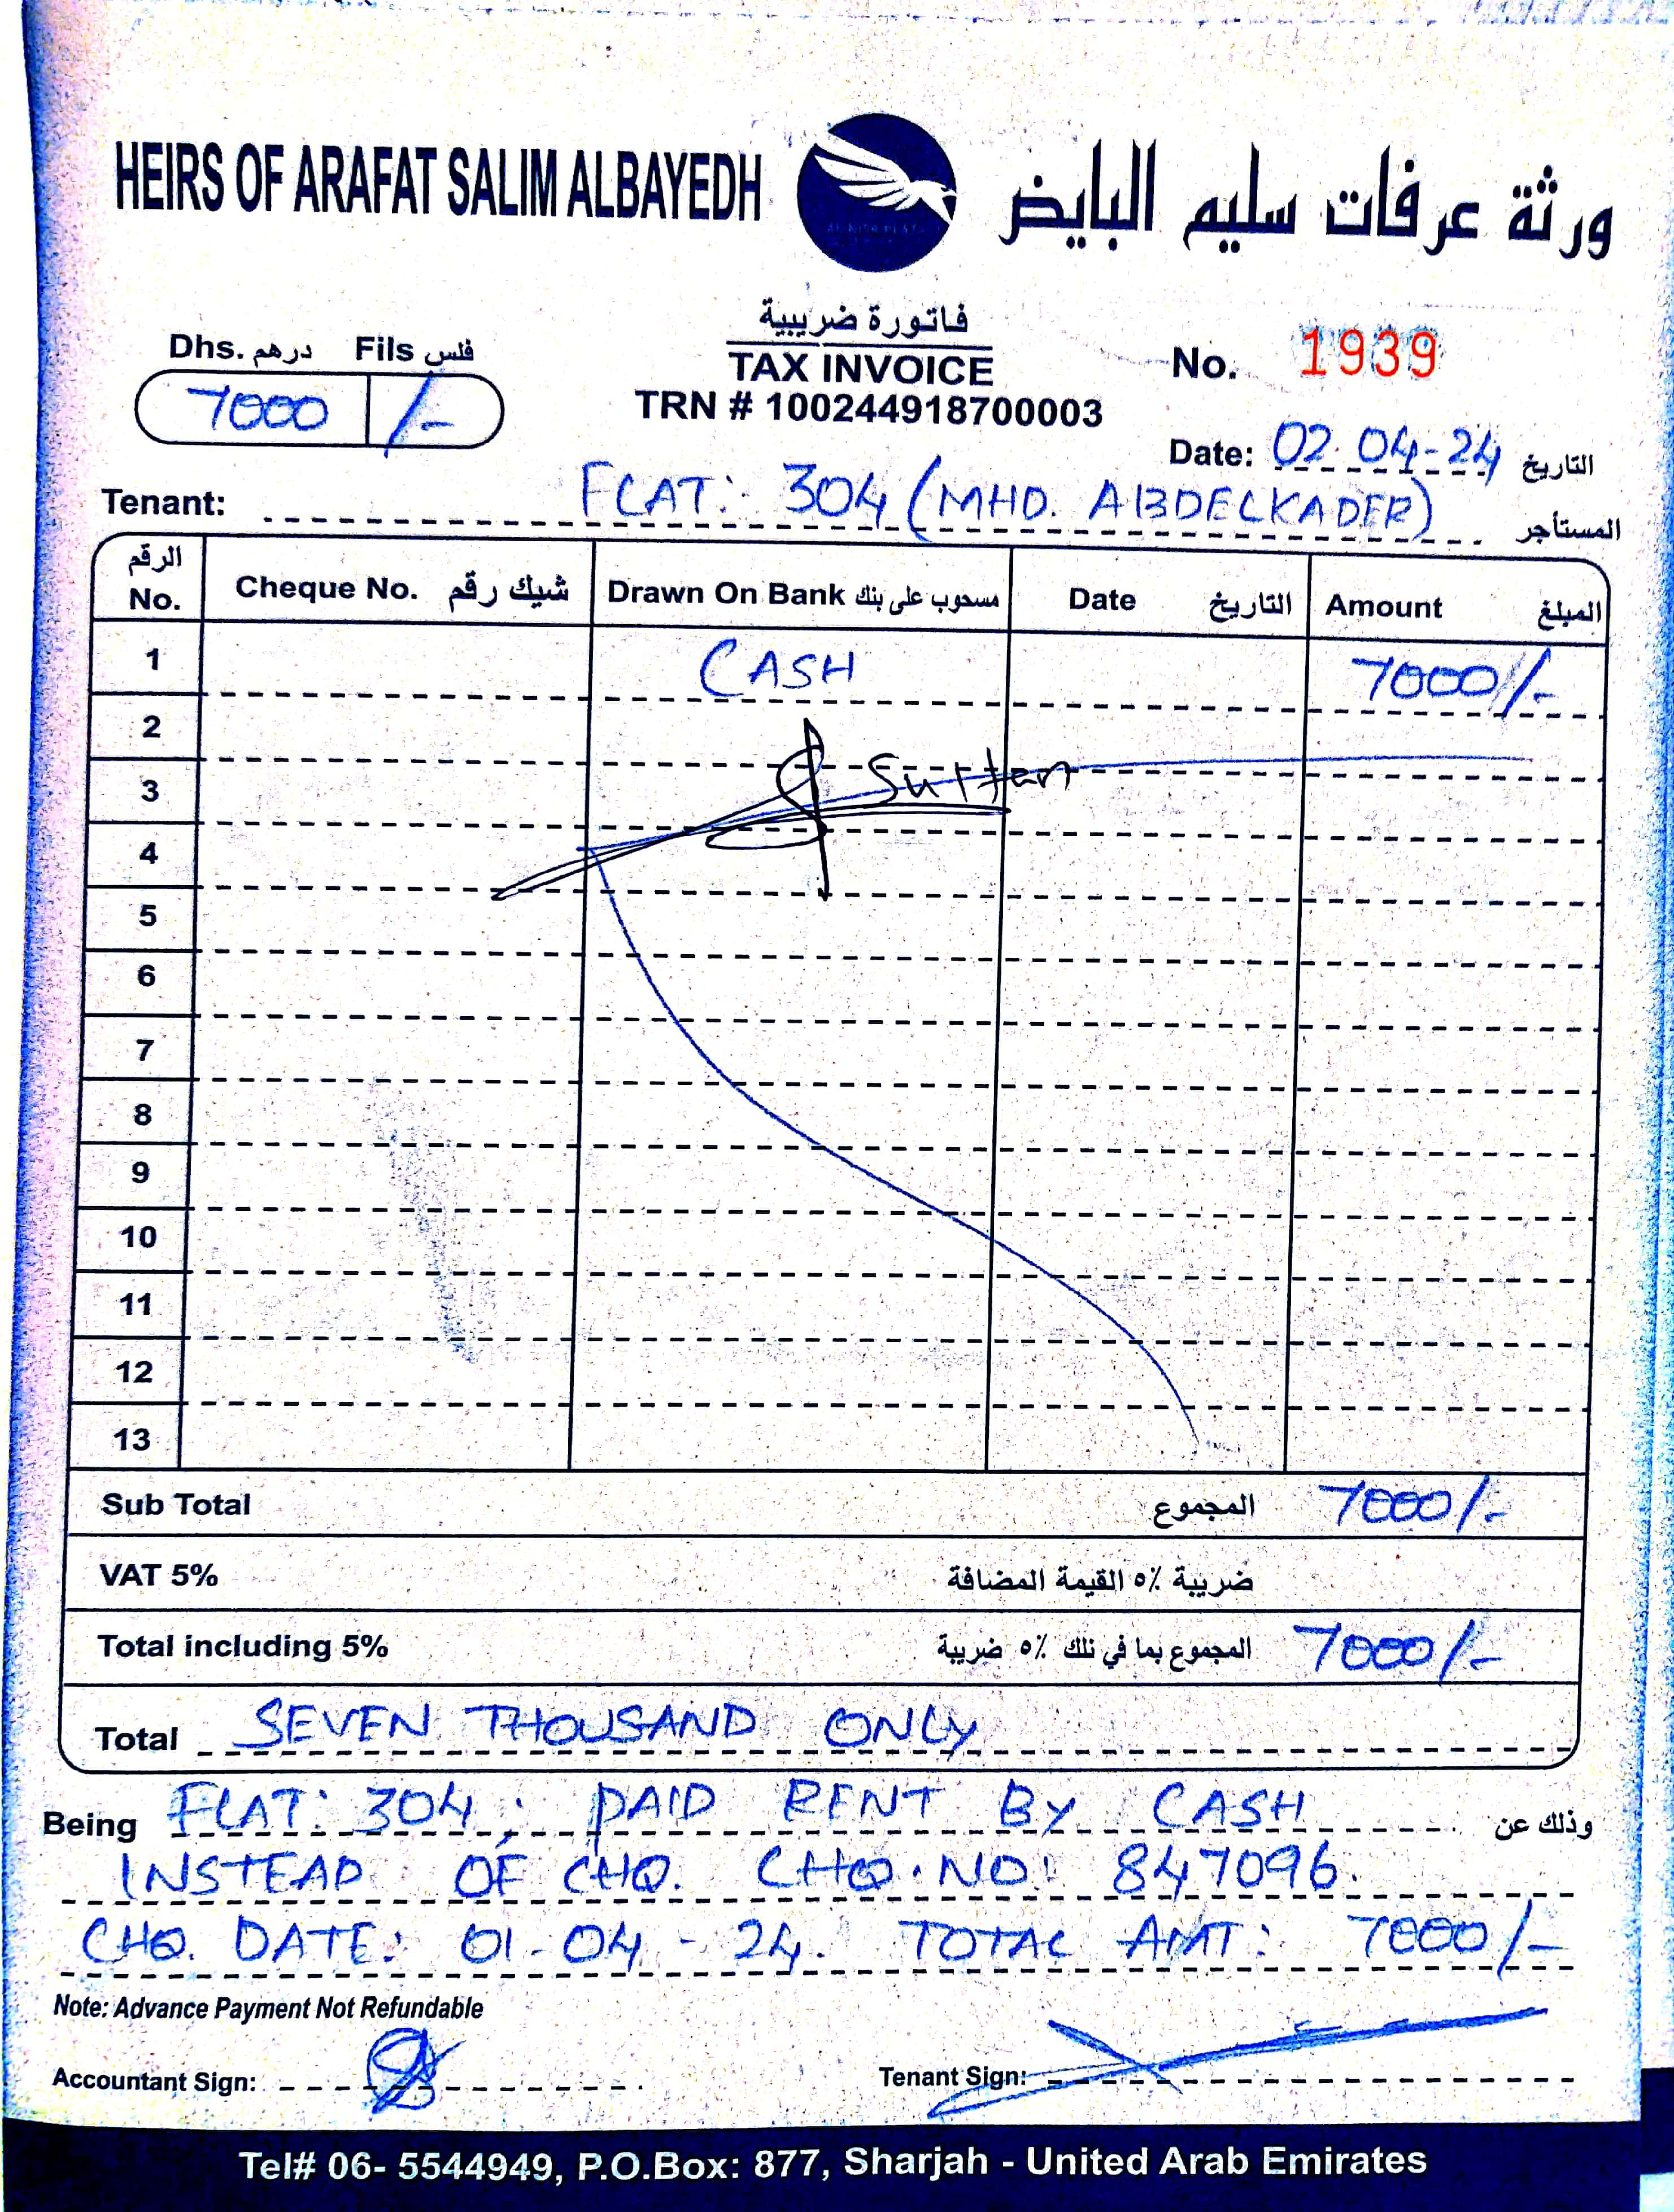 HEIRS OF ARAFAT SALIM ALBAYEDH
ورثة عرفات سليم البايض
فاتورة ضريبية
TAX INVOICE
TRN # 100244918700003
Dhs. درهم Fils فلس
7000 /-
No. 1939
Date: 02.04-24 التاريخ
Tenant: FLAT: 304 (MHD. ABDELKADER) المستأجر
الرقم No. Cheque No. شيك رقم Drawn On Bank مسحوب على بنك Date التاريخ Amount المبلغ
1 CASH 7000/-
2
3
4
5
6
7
8
9
10
11
12
13
Sub Total المجموع 7000/-
VAT 5% ضريبة ٥٪ القيمة المضافة
Total including 5% المجموع بما في تلك ٥٪ ضريبة 7000/-
Total SEVEN THOUSAND ONLY
Being FLAT: 304; PAID RENT BY CASH وذلك عن
INSTEAD OF CHQ. CHQ.NO: 847096.
CHQ. DATE: 01-04-24. TOTAL AMT: 7000/-
Note: Advance Payment Not Refundable
Accountant Sign: Tenant Sign:
Tel# 06- 5544949, P.O.Box: 877, Sharjah - United Arab Emirates